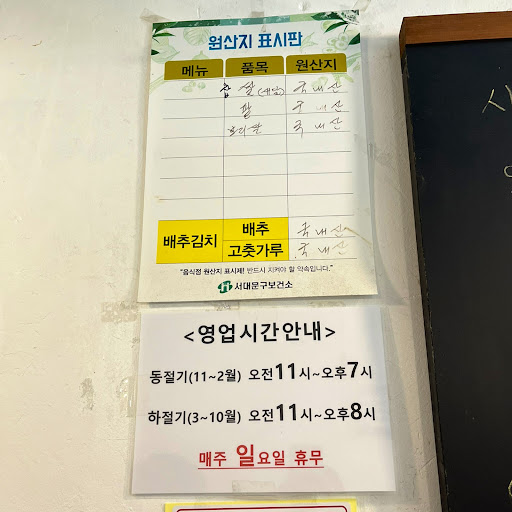 원산지 표시판
메뉴 품목 원산지
찹쌀(새알) 국내산
팥 국내산
보리쌀 국내산
배추김치 배추 국내산
고춧가루 국내산
"음식점 원산지 표시제! 반드시 지켜야 할 약속입니다."
서대문구보건소
<영업시간안내>
동절기(11~2월) 오전11시~오후7시
하절기(3~10월) 오전11시~오후8시
매주 일요일 휴무